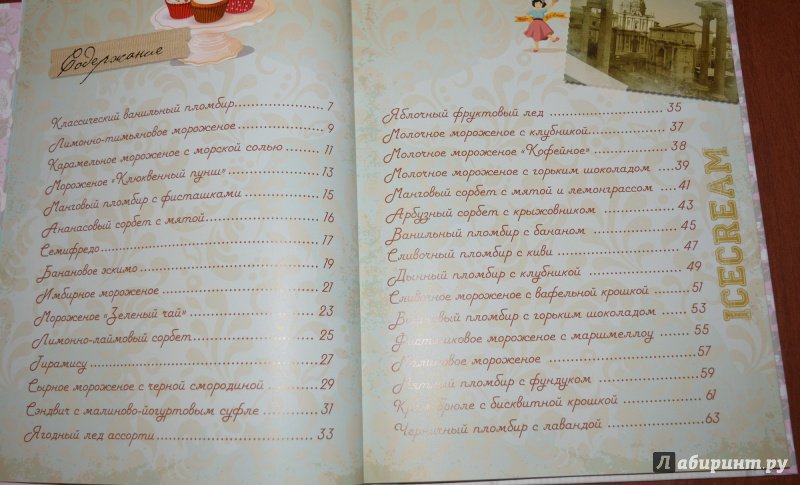 Содержание
Классический ванильный пломбир 7
Лимонно-тимьяновое мороженое 9
Карамельное мороженое с морской солью 11
Мороженое «Клюквенный пунш» 13
Манговый пломбир с фисташками 15
Ананасовый сорбет с мятой 16
Семифредо 17
Банановое эскимо 19
Имбирное мороженое 21
Мороженое «Зеленый чай» 23
Лимонно-лаймовый сорбет 25
Тирамису 27
Сырное мороженое с черной смородиной 29
Сэндвич с малиново-йогуртовым суфле 31
Ягодный лед ассорти 33
Яблочный фруктовый лед 35
Молочное мороженое с клубникой 37
Молочное мороженое «Кофейное» 38
Молочное мороженое с горьким шоколадом 39
Манговый сорбет с мятой и лемонграссом 41
Арбузный сорбет с крыжовником 43
Ванильный пломбир с бананом 45
Сливочный пломбир с киви 47
Дынный пломбир с клубникой 49
Сливочное мороженое с вафельной крошкой 51
пломбир с горьким шоколадом 53
Фисташковое мороженое с маршмеллоу 55
мороженое 57
Мятный пломбир с фундуком 59
Крем-брюле с бисквитной крошкой 61
Черничный пломбир с лавандой 63
ICECREAM
Лабиринт.ру